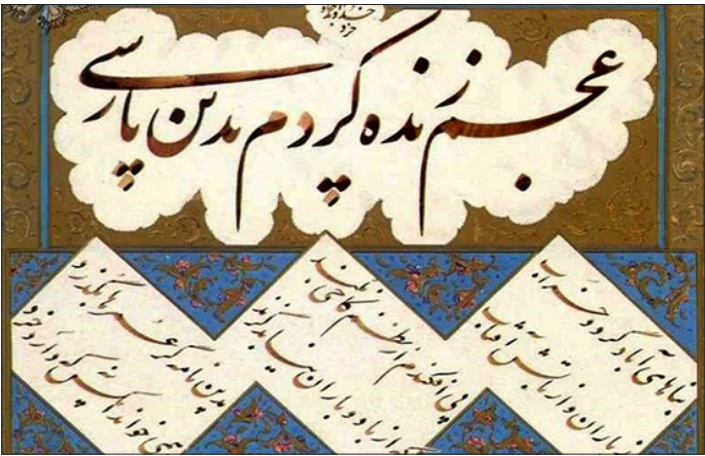 عجم زنده کردم بدین پارسی
بناهای آباد گردد خراب
ز باران و از تابش آفتاب
پی افکندم از نظم کاخی بلند
که از باد و باران نیابد گزند
بدین نامه گر عمرها بگذرد
همی خواند آنکس که دارد خرد